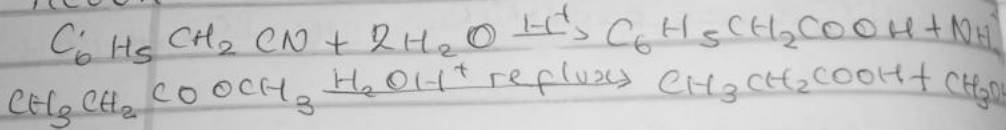 C6H5CH2CN + 2H2O H+→ C6H5CH2COOH + NH
CH3CH2COOCH3 H2OH+ reflux→ CH3CH2COOH + CH3O